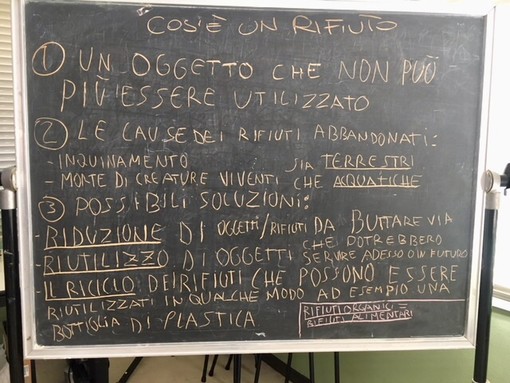 COS'È UN RIFIUTO
① UN OGGETTO CHE NON PUÒ
PIÙ ESSERE UTILIZZATO
② LE CAUSE DEI RIFIUTI ABBANDONATI:
- INQUINAMENTO SIA TERRESTRI
- MORTE DI CREATURE VIVENTI CHE ACQUATICHE
③ POSSIBILI SOLUZIONI:
- RIDUZIONE DI OGGETTI/RIFIUTI DA BUTTARE VIA
CHE POTREBBERO
- RIUTILIZZO DI OGGETTI SERVIRE ADESSO O IN FUTURO
- IL RICICLO DEI RIFIUTI CHE POSSONO ESSERE
RIUTILIZZATI IN QUALCHE MODO AD ESEMPIO UNA
BOTTIGLIA DI PLASTICA
RIFIUTI ORGANICI =
RIFIUTI ALIMENTARI